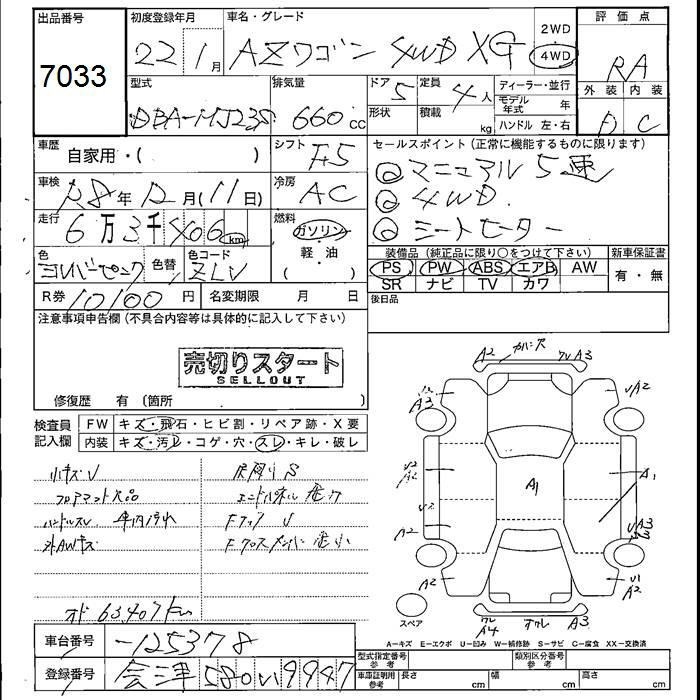 出品番号
7033
初度登録年月
22年 1月
車名・グレード
AZワゴン 4WD XG
2WD
4WD
評価点
RA
外装 内装
D C
型式
DBA-MJ23S
排気量
660cc
ドア
5
形状
定員
4人
積載
kg
ディーラー・並行
モデル年式 年
ハンドル 左・右
車歴
自家用・( )
シフト
F5
セールスポイント(正常に機能するものに限ります)
◎マニュアル5速
◎4WD
◎シートヒーター
車検
R8年 12月(11日)
冷房
AC
走行
6万3千406km
燃料
ガソリン
軽・油
( )
装備品(純正品に限り○をつけて下さい)
PS PW ABS エアB AW
SR ナビ TV カワ
新車保証書
有・無
色
シルバーピンク
色替
色コード
ZLV
R券 10100円
名変期限 月 日
後日品
注意事項申告欄(不具合内容等は具体的に記入して下さい)
売切りスタート
SELLOUT
修復歴 有(箇所 )
検査員記入欄
FW キズ・飛石・ヒビ割・リペア跡・X要
内装 キズ・汚レ・コゲ・穴・スレ・キレ・破レ
小キズV
フロアマット欠品
ハンドルスレ 車内汚れ
外AWキズ
下廻りS
エンドパネル
Fフック V
Fクロスメンバー
オド 63407km
A2 カバー穴 ワレA3
A3
A2
A1
A1
A2
A2
スペア
A4
A3
A-キズ E-エクボ U-凹み W-補修跡 S-サビ C-腐食 XX-交換済
車台番号
-125378
登録番号
会津 580 い 9947
型式指定番号 参考
類別区分番号 参考
車庫証明用 参考
長さ cm
幅 cm
高さ cm